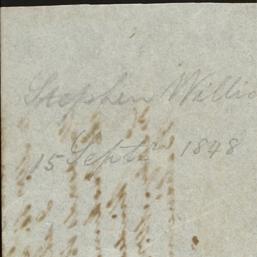 Stephen Willi
15 Septr 1848